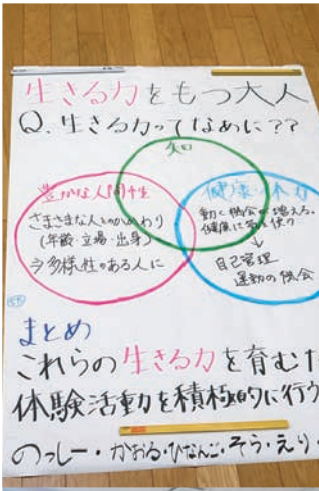 生きる力をもつ大人
Q.生きる力ってなあに??
知
豊かな人間性
さまざまな人とのかかわり
(年齢・立場・出身)
⇒多様性のある人に
健康・体力
動く機会が増える。
健康に気を使う
↓
自己管理
運動の機会
まとめ
これらの生きる力を育むた
体験活動を積極的に行う
のっしー・かおる・ひなんこ・そう・えり・